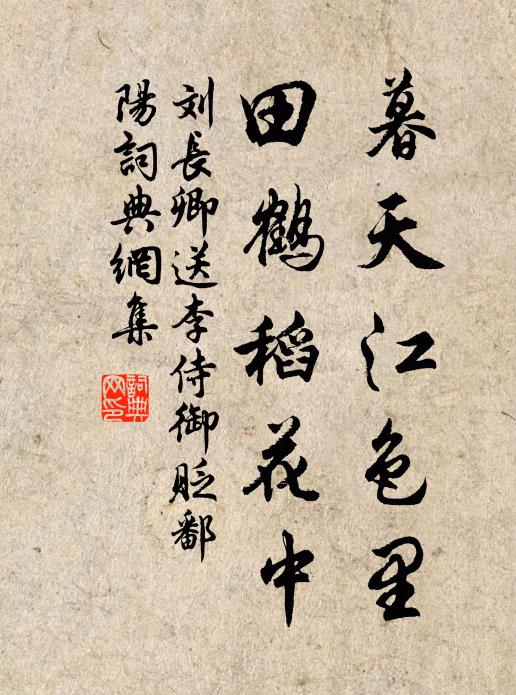 暮天江色里
田鹤稻花中
刘長卿送李侍御貶鄱
陽詞典網集
詞典
网印